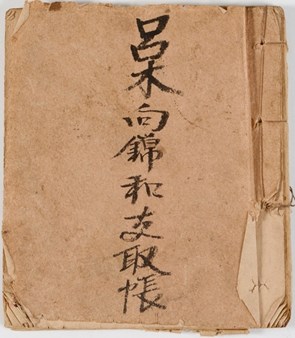 吕木向錦和支取帳